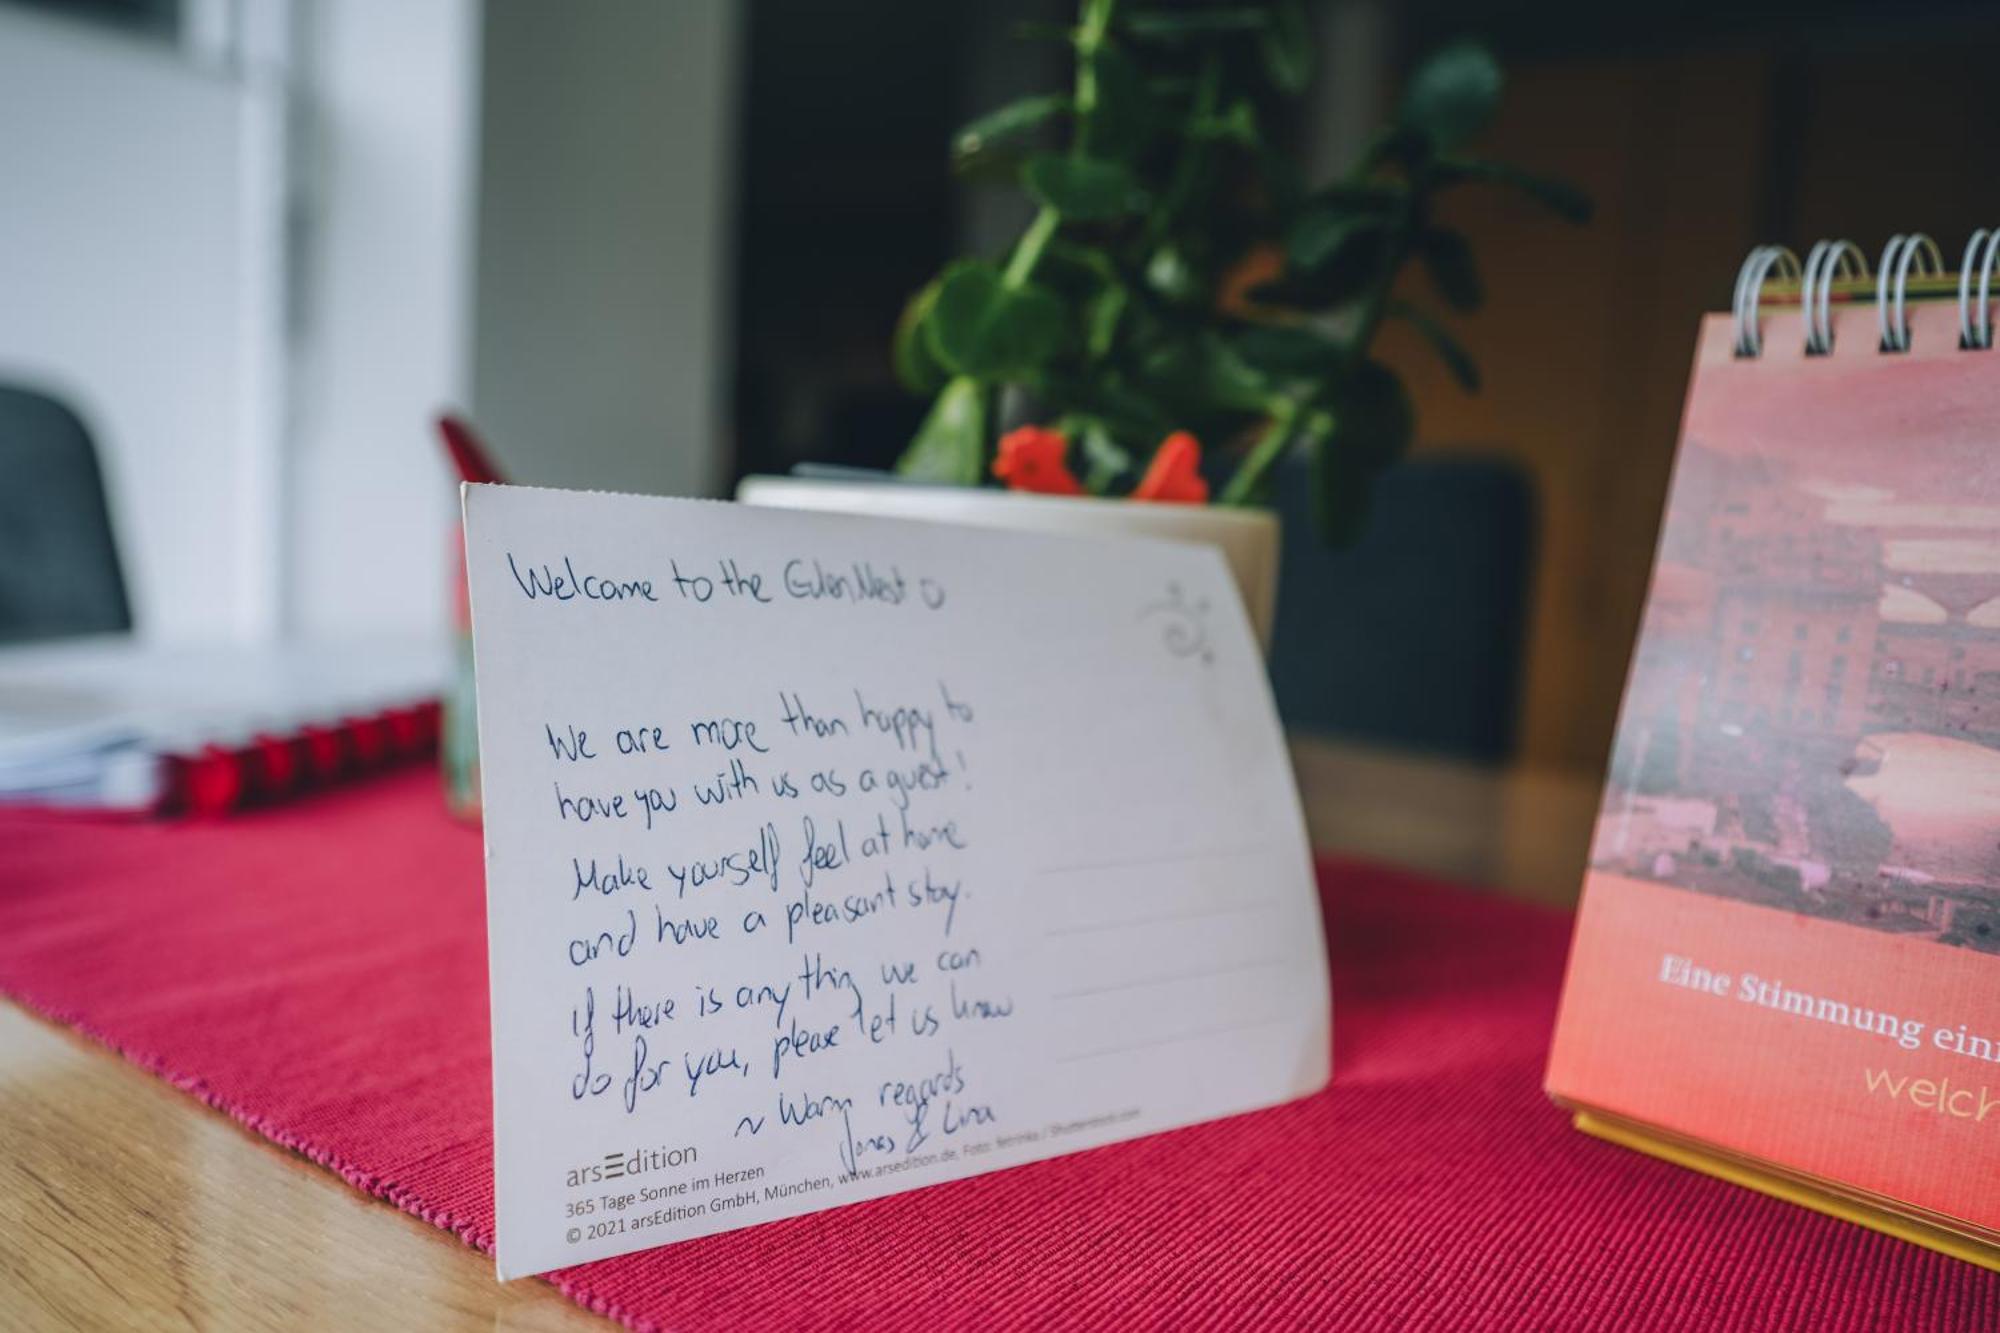 Welcome to the
We are more than happy to
have you with us as a guest!
Make yourself feel at home
and have a pleasant stay.
If there is anything we can
do for you, please let us know
~ Warm regards
Jonas & Lina
arsEdition
365 Tage Sonne im Herzen
© 2021 arsEdition GmbH, München, www.arsedition.de, Foto: / Shutterstock.com
Eine Stimmung ein
welch